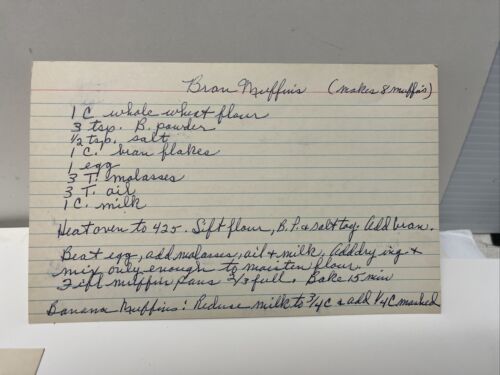 Bran Muffins (makes 8 muffins)
1 C. whole wheat flour
3 tsp. B. powder
1/2 tsp. salt
1 C. bran flakes
1 egg
3 T. molasses
3 T. oil
1 C. milk
Heat oven to 425. Sift flour, B.P. & salt tog. Add bran.
Beat egg, add molasses, oil & milk. Add dry ing &
mix only enough to moisten flour.
Fill muffin pans 2/3 full. Bake 15 min
Banana Muffins: Reduce milk to 3/4 C & add 1/4 C mashed